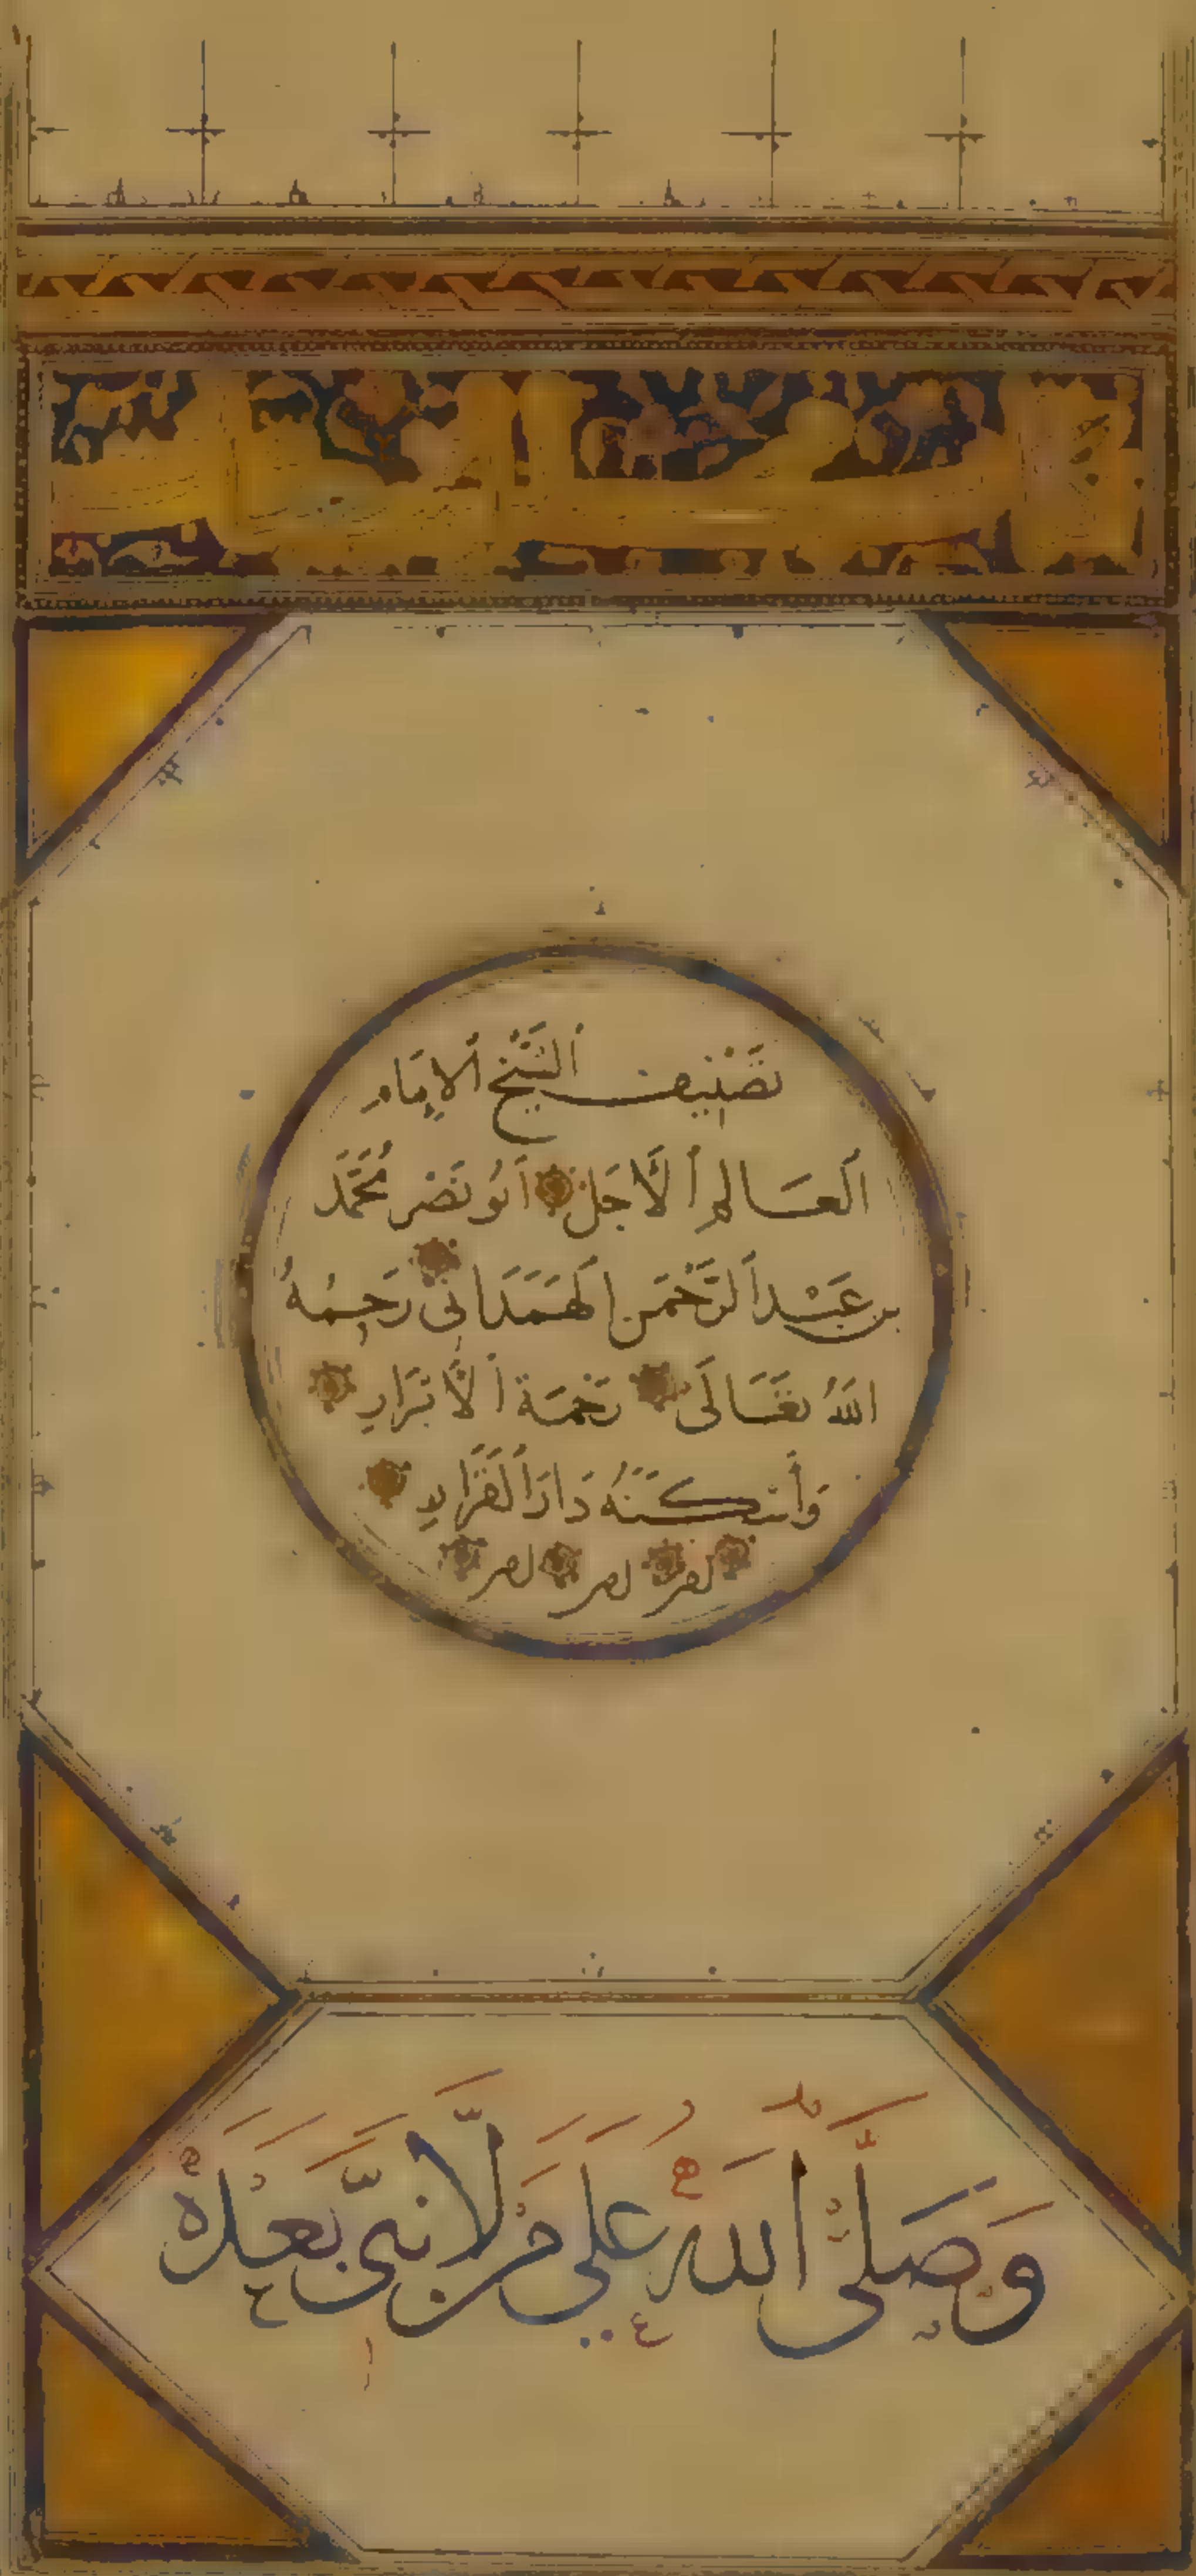 تَصْنِيف الشَّيْخِ الْاِمَامِ
اَلْعَالِمِ الْاَجَلِّ اَبُو نَصْرٍ مُحَمَّد
بن عَبْدِ الرَّحْمَنِ الْهَمَدَانِي رَحِمَهُ
اللهُ تَعَالَى رَحْمَةَ الْاَبْرَارِ
وَأَسْكَنَهُ دَارَ الْقَرَارِ
وَصَلَّى اللهُ عَلَى مَن لَّا نَبِيَّ بَعْدَهُ